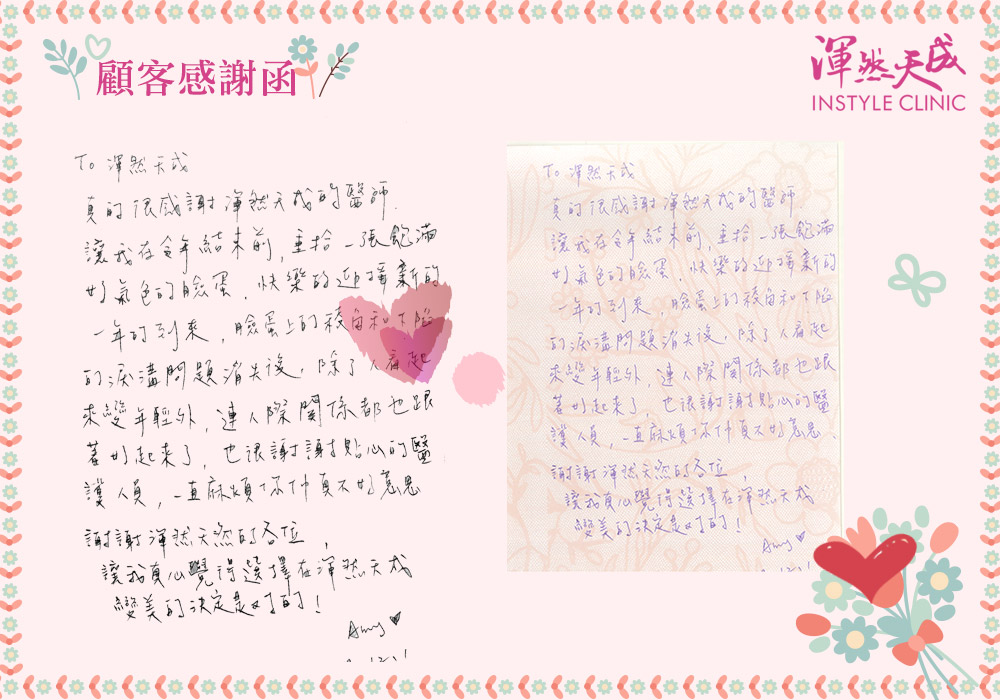 顧客感謝函
渾然天成
INSTYLE CLINIC
To 渾然天成
真的很感謝渾然天成的醫師.
讓我在今年結束前,重拾一張飽滿
好氣色的臉蛋.快樂的迎接新的
一年的到來,臉蛋上的稜角和下陷
的淚溝問題消失後,除了人看起
來變年輕外,連人際關係都也跟
著好起來了,也很謝謝貼心的醫
護人員,一直麻煩你們真不好意思
謝謝渾然天然的各位,
讓我真心覺得選擇在渾然天成
變美的決定是對的!
Amy♥
To 渾然天成
真的很感謝渾然天成的醫師.
讓我在今年結束前,重拾一張飽滿
好氣色的臉蛋.快樂的迎接新的
一年的到來,臉蛋上的稜角和下陷
的淚溝問題消失後,除了人看起
來變年輕外,連人際關係都也跟
著好起來了,也很謝謝貼心的醫
護人員,一直麻煩你們真不好意思.
謝謝渾然天然的各位,
讓我真心覺得選擇在渾然天成
變美的決定是對的!
Amy♥